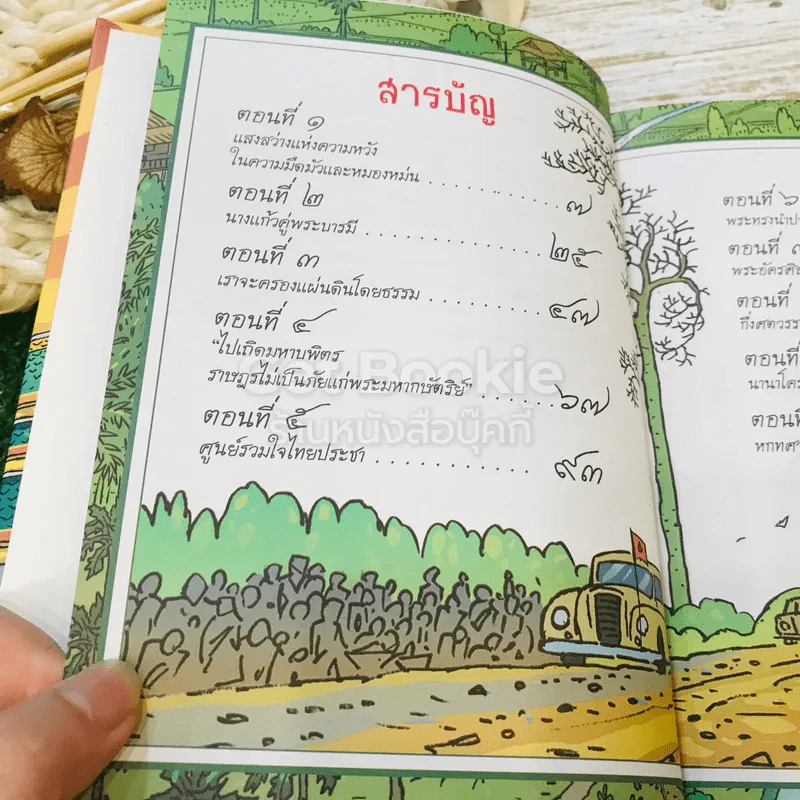 สารบัญ
ตอนที่ ๑
แสงสว่างแห่งความหวัง
ในความมืดมัวและหมองหม่น . . . . . . . . . . . . . ๗
ตอนที่ ๒
นางแก้วคู่พระบารมี . . . . . . . . . . . . . . . . . ๒๕
ตอนที่ ๓
เราจะครองแผ่นดินโดยธรรม . . . . . . . . . . . ๔๗
ตอนที่ ๔
"ไปเถิดมหาบพิตร
ราษฎรไม่เป็นภัยแก่พระมหากษัตริย์" . . . . . . . . . ๖๗
ตอนที่ ๕
ศูนย์รวมใจไทยประชา . . . . . . . . . . . . . ๙๓
Get Bookie
ร้านหนังสือบุ๊คกี้
ตอนที่ ๖
พระทรงนำ
ตอนที่
ตอนที่
ตอนที่